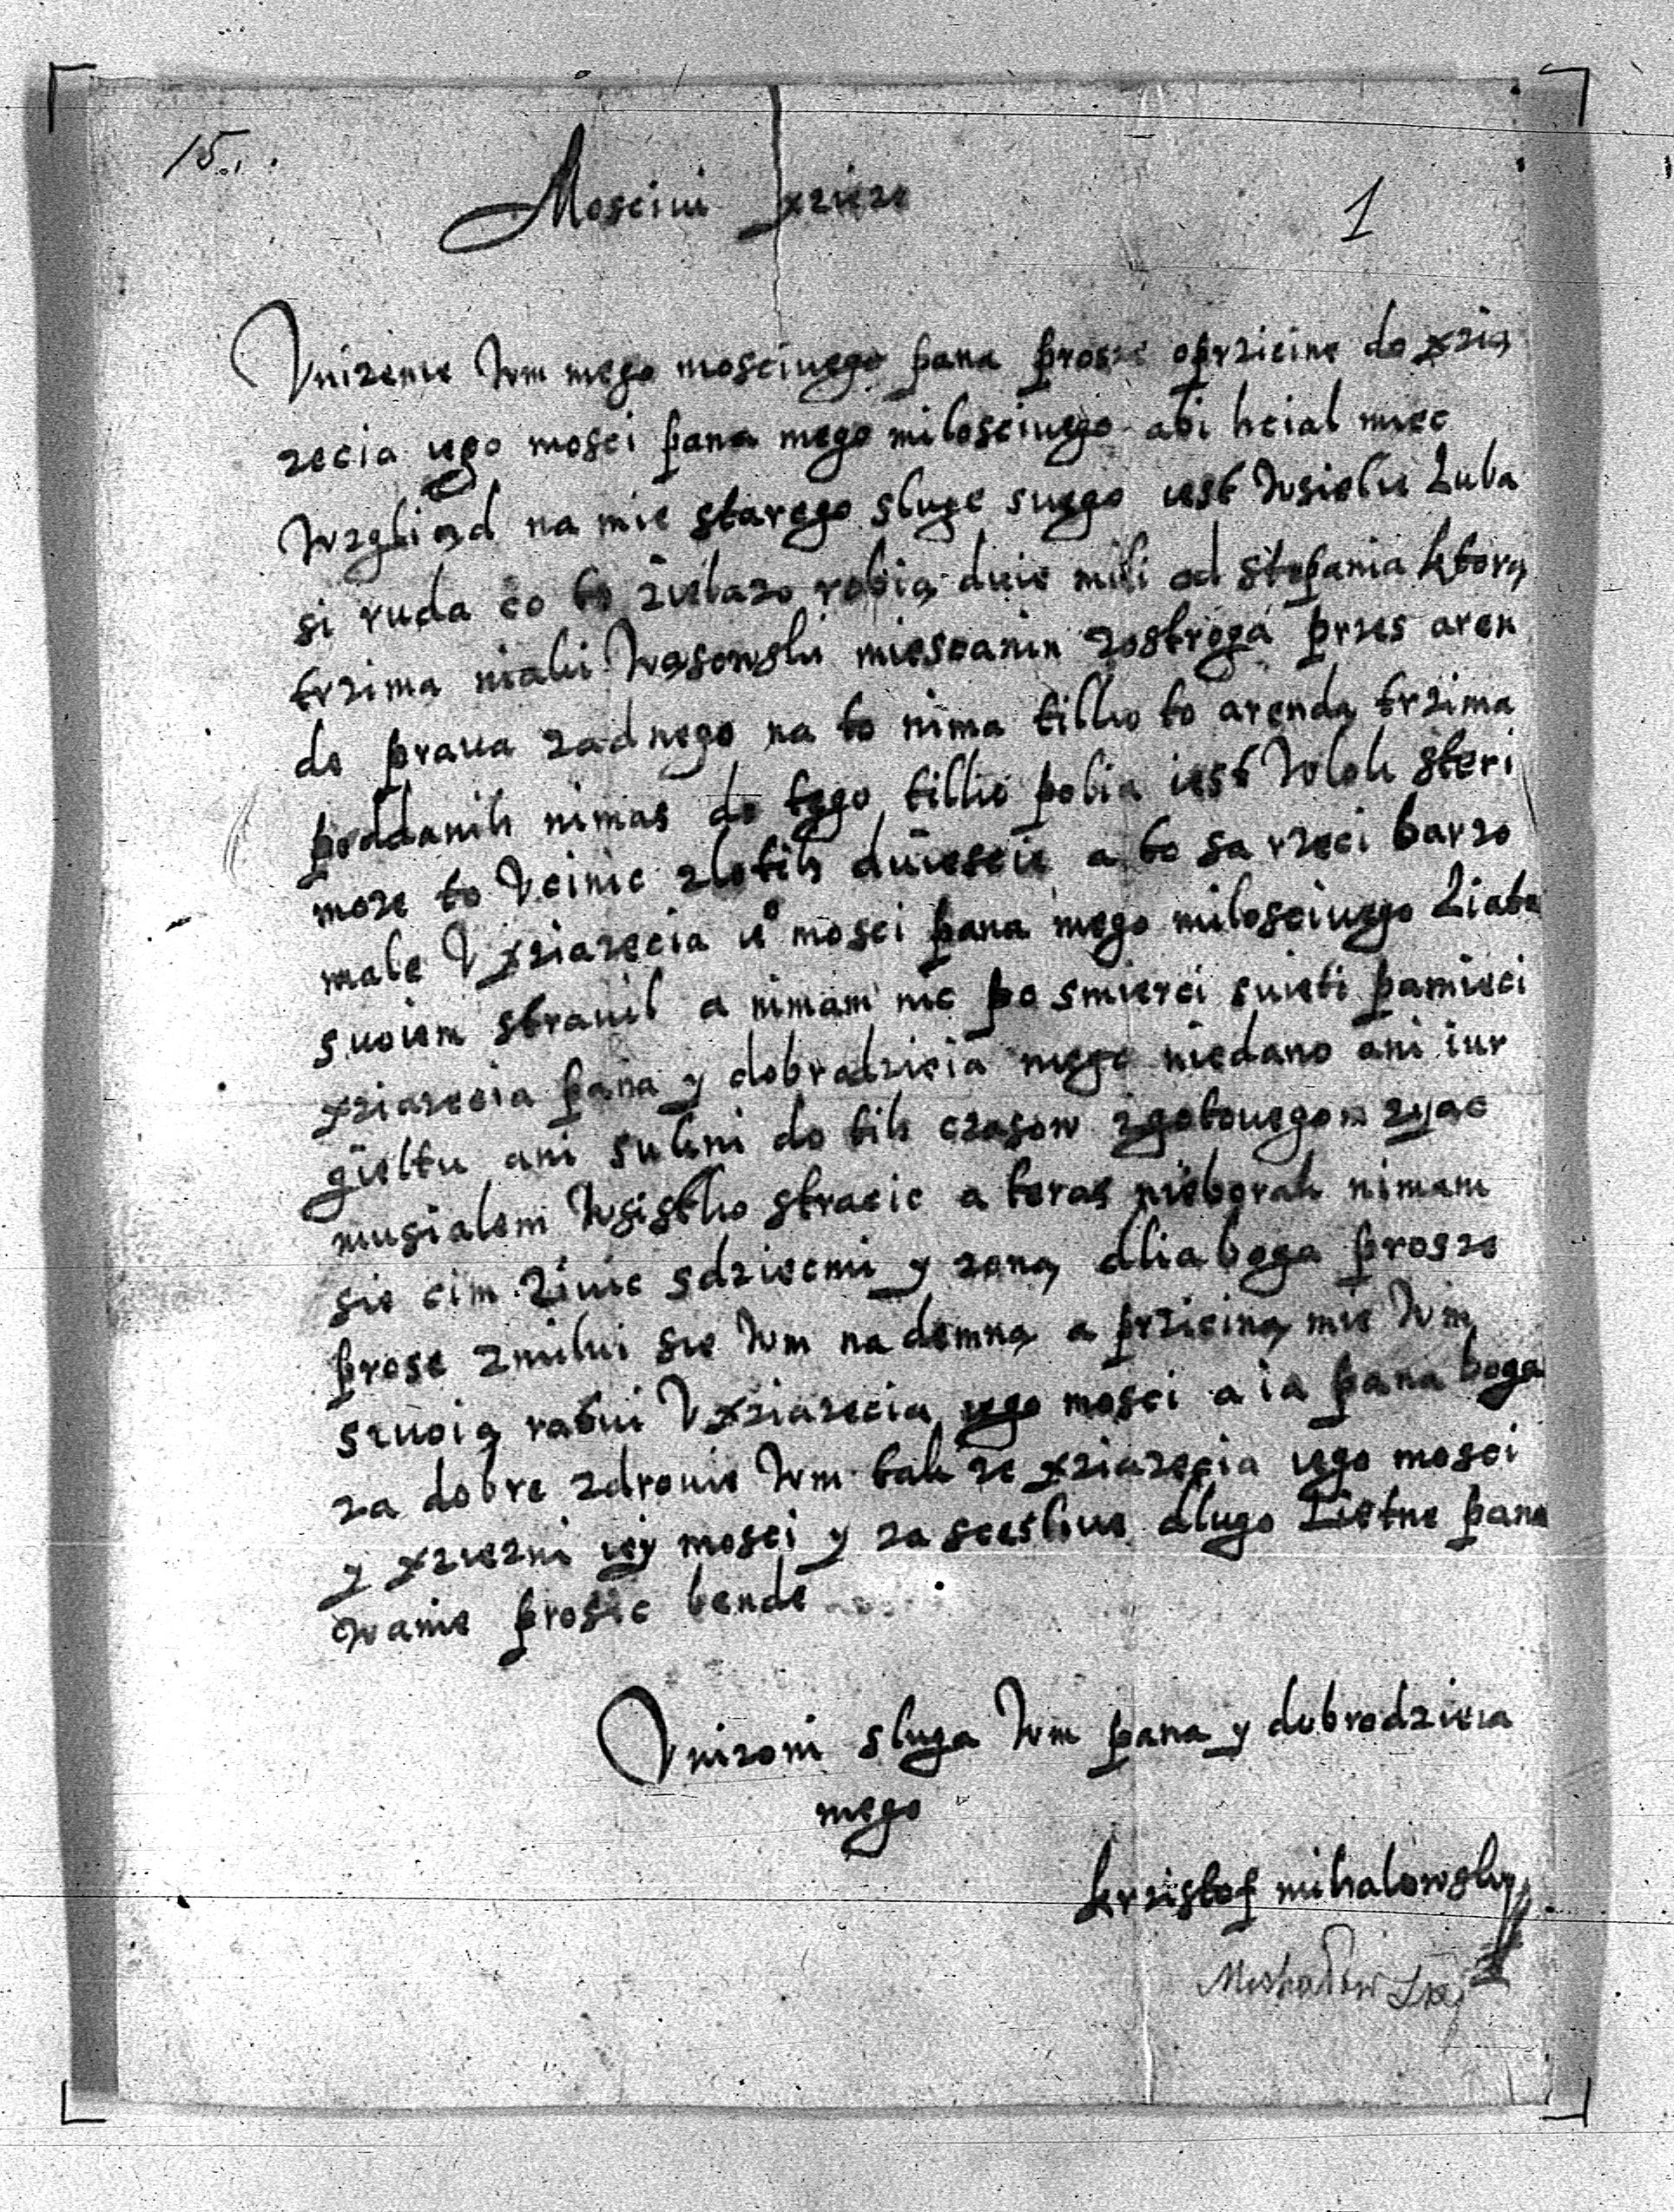 15.
Moscivi xzieze
1
Vnizenie Wm mego mosciuego pana prosze oprzicine do xzią
zecia iego mosci pana mego milosciuego abi hcial miec
Wzgliąd na mie starego sluge suego iest Wsielie Luba
si ruda co to zielazo robią duie mili od stepania ktorą
trzima niaki Wąsowski miescanin zostroga przes aren
de praua zadnego na to nima tilko to arendą trzima
poddanih nimas do tego tilko polia iest Wlok steri
moze to Vcinic zlotih duiescie a to sa rzeci barzo
male V xziazecia ie° mosci pana mego milosciuego Liata
suoiem strauil a nimam nic po smierci suieti pamieci
xziazecia pana y dobrodzieia mego niedano ani iur
gieltu ani sukni do tih czasow zgotouegom zyac
musialem Wsistko stracic a teras nieborak nimam
sie cim ziuic sdziecmi y zoną dlia boga prosze
prose zmilui sie Wm na demną a prziciną mie Wm
swoią ratui V xziazecia iego mosci a ia pana boga
za dobre zdrouie Wm tak ze xziazecia iego mosci
y xziezni iey mosci y za scesliue dlugo Lietne pano
wanie prosic bende
Vnizoni sluga Wm pana y dobrodzieia
mego
krzistof mihalowsky